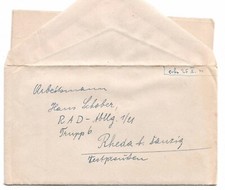 Arbeitsmann
Hans Schöber,
RAD - Abtlg. 1/21
Trupp 6
Rheda b. Danzig
Westpreußen